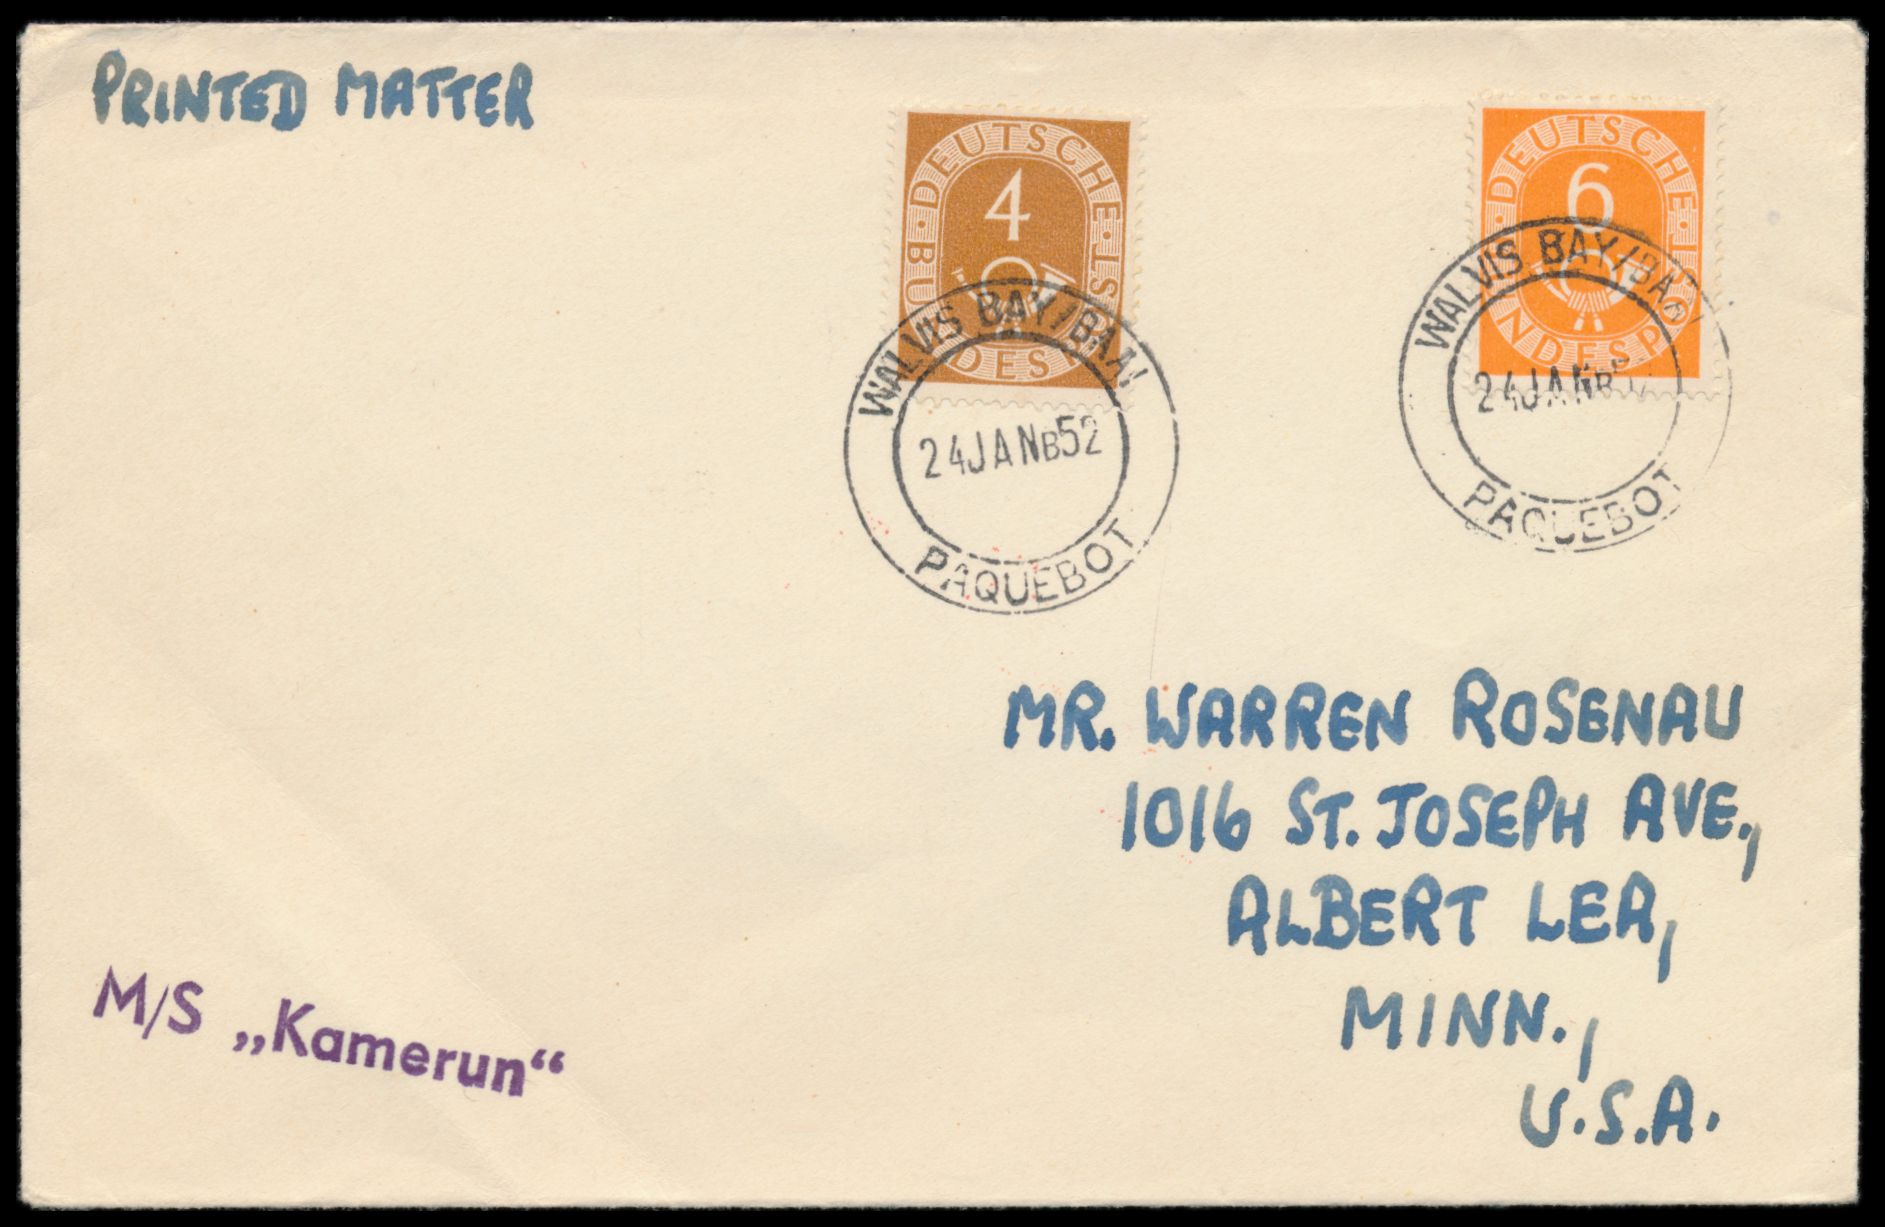 PRINTED MATTER
DEUTSCHE BUNDESPOST
4
DEUTSCHE BUNDESPOST
6
WALVIS BAY/BAAI
24JANB52
PAQUEBOT
WALVIS BAY/BAAI
24JANB
PAQUEBOT
MR. WARREN ROSENAU
1016 ST. JOSEPH AVE.,
ALBERT LEA,
MINN.,
U.S.A.
M/S „Kamerun“